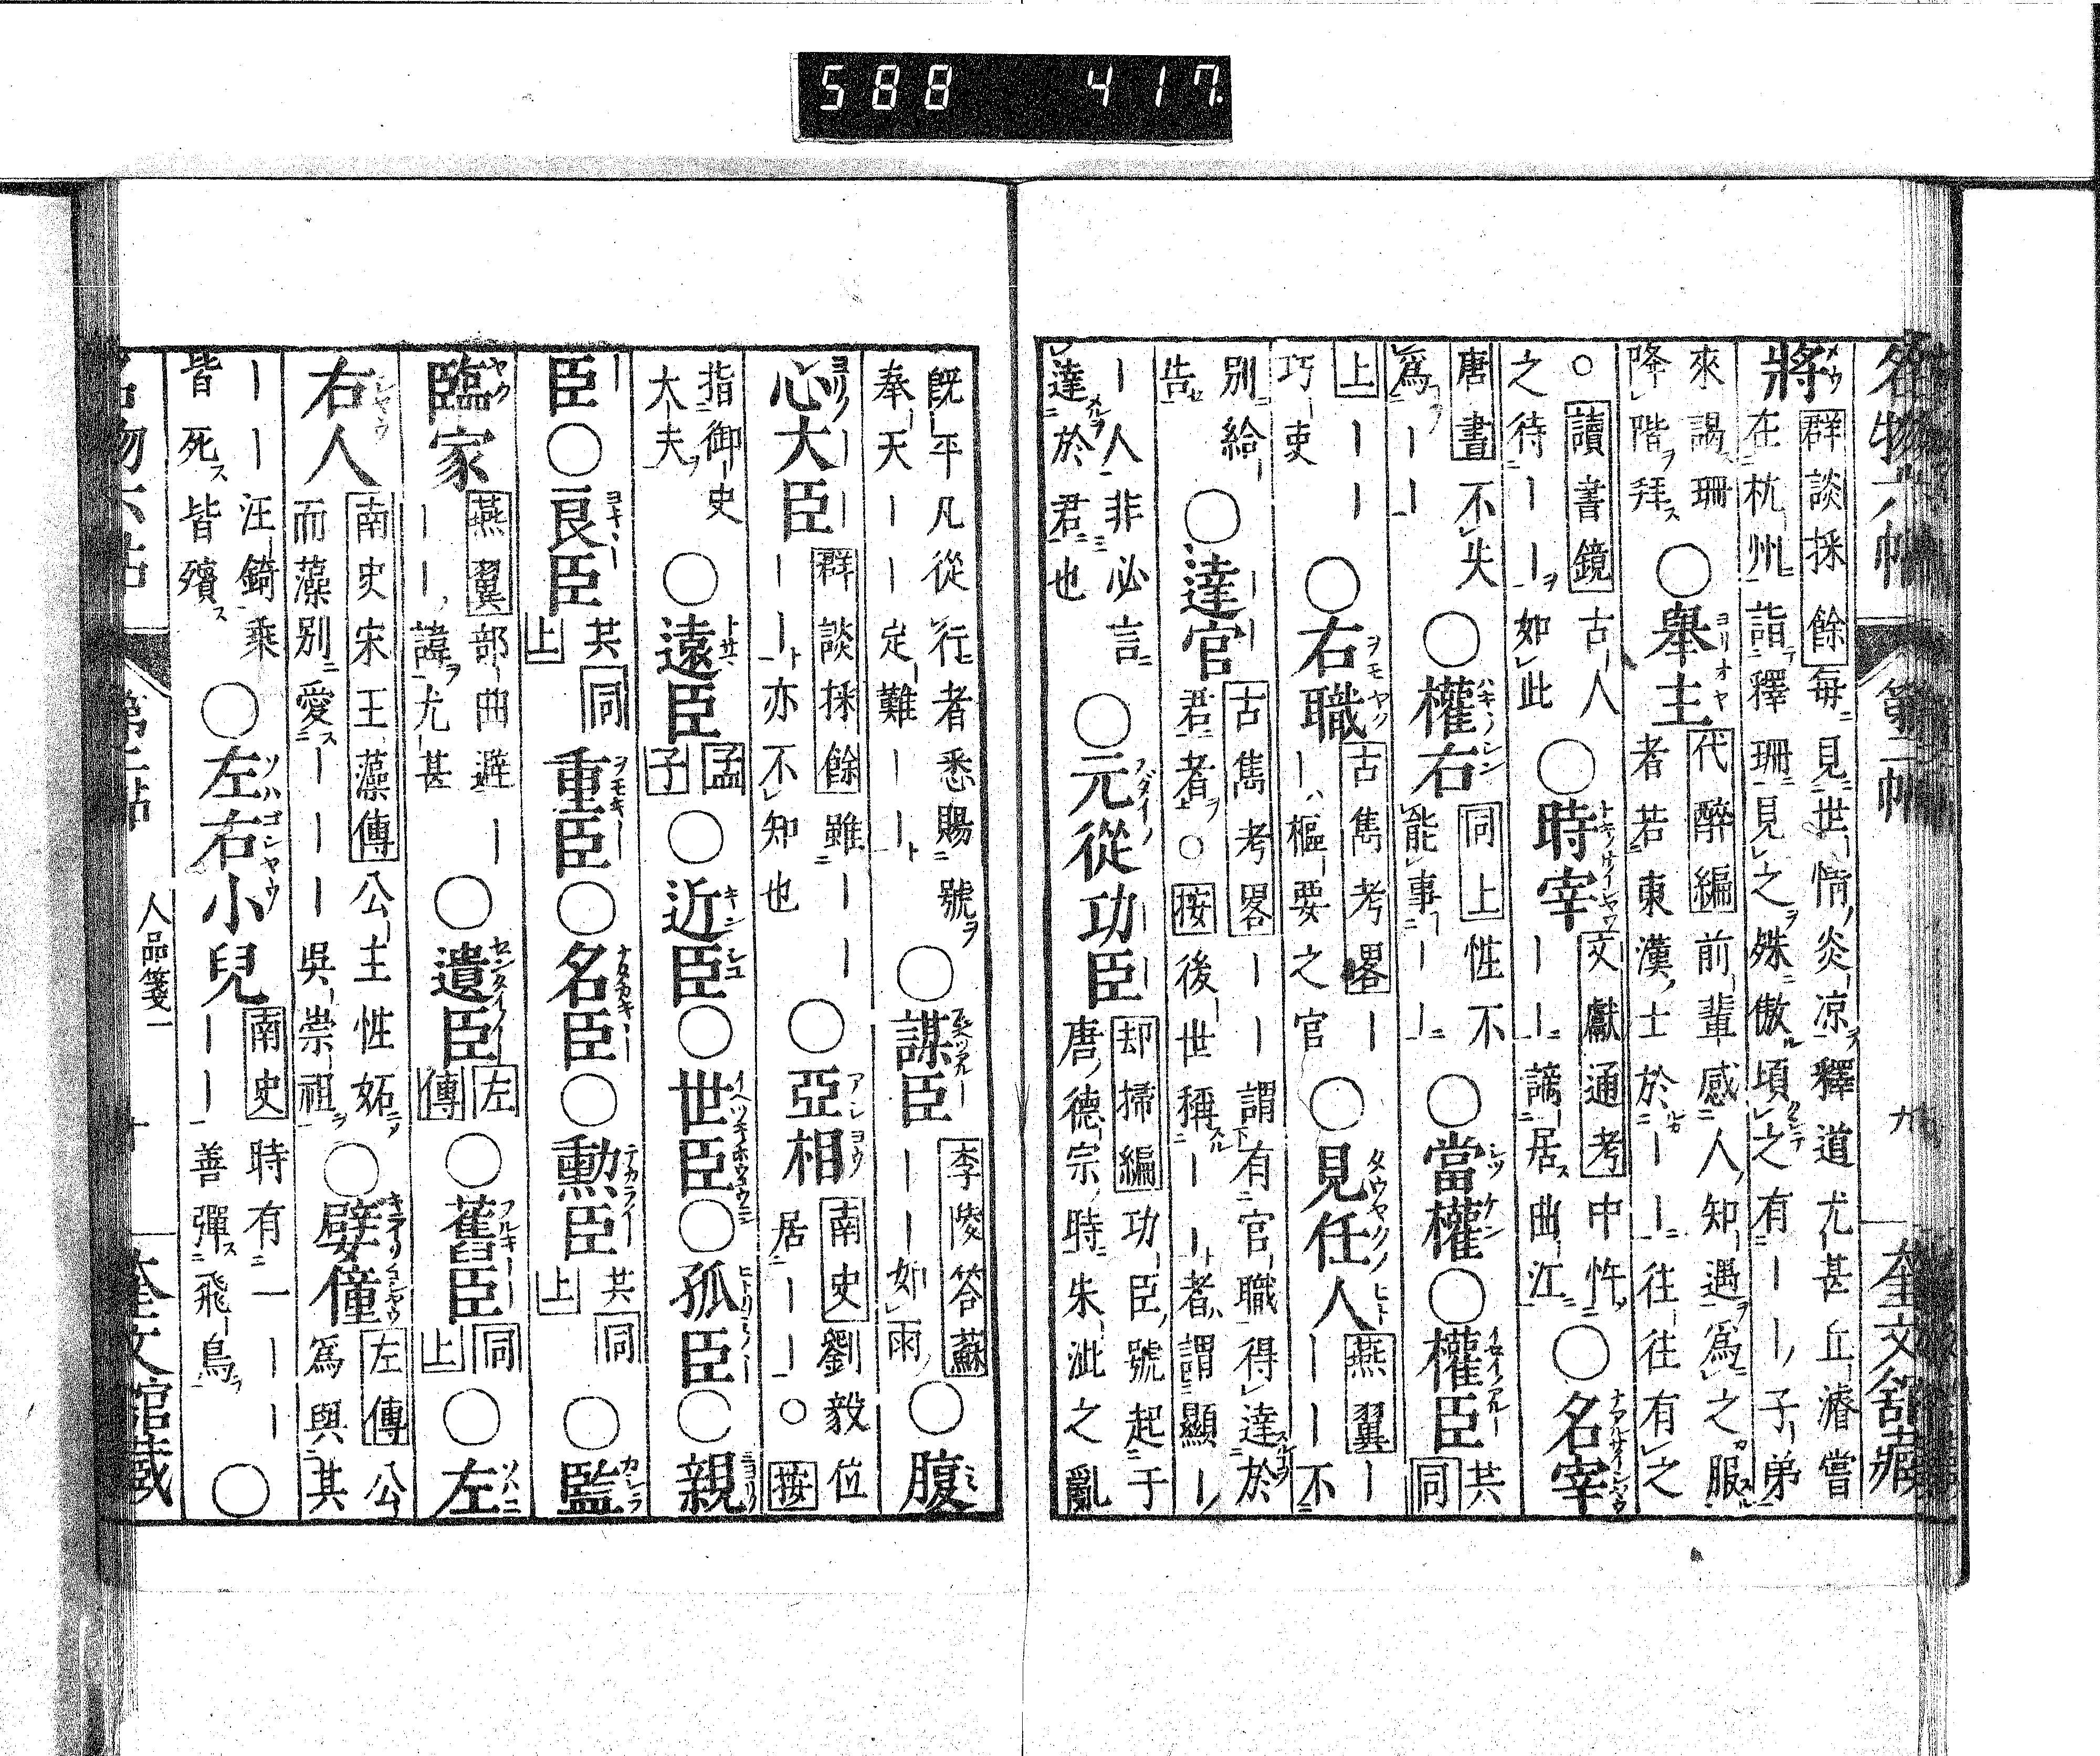 588 417
名物六帖 第二帖 九 奎文舘藏
將 群談採餘 每見世情炎凉釋道尤甚丘濬嘗
在杭州詣釋珊見之殊傲頃之有丨丨子弟
來謁珊
降階拜 ○舉主 代醉編 前輩感人知遇爲之服
者若東漢士於丨丨往往有之
○讀書鏡 古人
之待丨丨如此 ○時宰 文獻通考 中忤
丨丨謫居曲江 ○名宰
唐書 不失
爲丨丨 ○權右 同上 性不
能事丨丨 ○當權 ○權臣 共同
上丨丨
巧吏 ○右職 古雋考畧 丨
丨樞要之官 ○見任人 燕翼 丨
丨丨不
別給
告 ○達官 古雋考畧 丨丨謂有官職得達於
君者○按後世稱丨丨者謂顯丨
丨人非必言
達於君也 ○元從功臣 却掃編 功臣號起于
唐德宗時朱泚之亂
既平凡從行者悉賜號
奉天丨丨定難丨丨 ○謀臣 李陵答蘇
丨丨如雨 ○腹
心大臣 群談採餘 雖丨丨
丨丨亦不知也 ○亞相 南史 劉毅位
居丨丨○按
指御史
大夫 ○遠臣 孟子 ○近臣 ○世臣 ○孤臣 ○親
臣 ○良臣 共同上 重臣 ○名臣 ○勳臣 共同上 ○監
臨家 燕翼 部曲避丨
丨丨諱尤甚 ○遺臣 左傳 ○舊臣 同上 ○左
右人 南史宋王藻傳 公主性妬
而藻別愛丨丨丨吳崇祖 ○嬖僮 左傳 公
爲與其
丨丨汪錡乘
皆死皆殯 ○左右小兒 南史 時有一丨丨
丨丨善彈飛鳥 ○
人品箋一